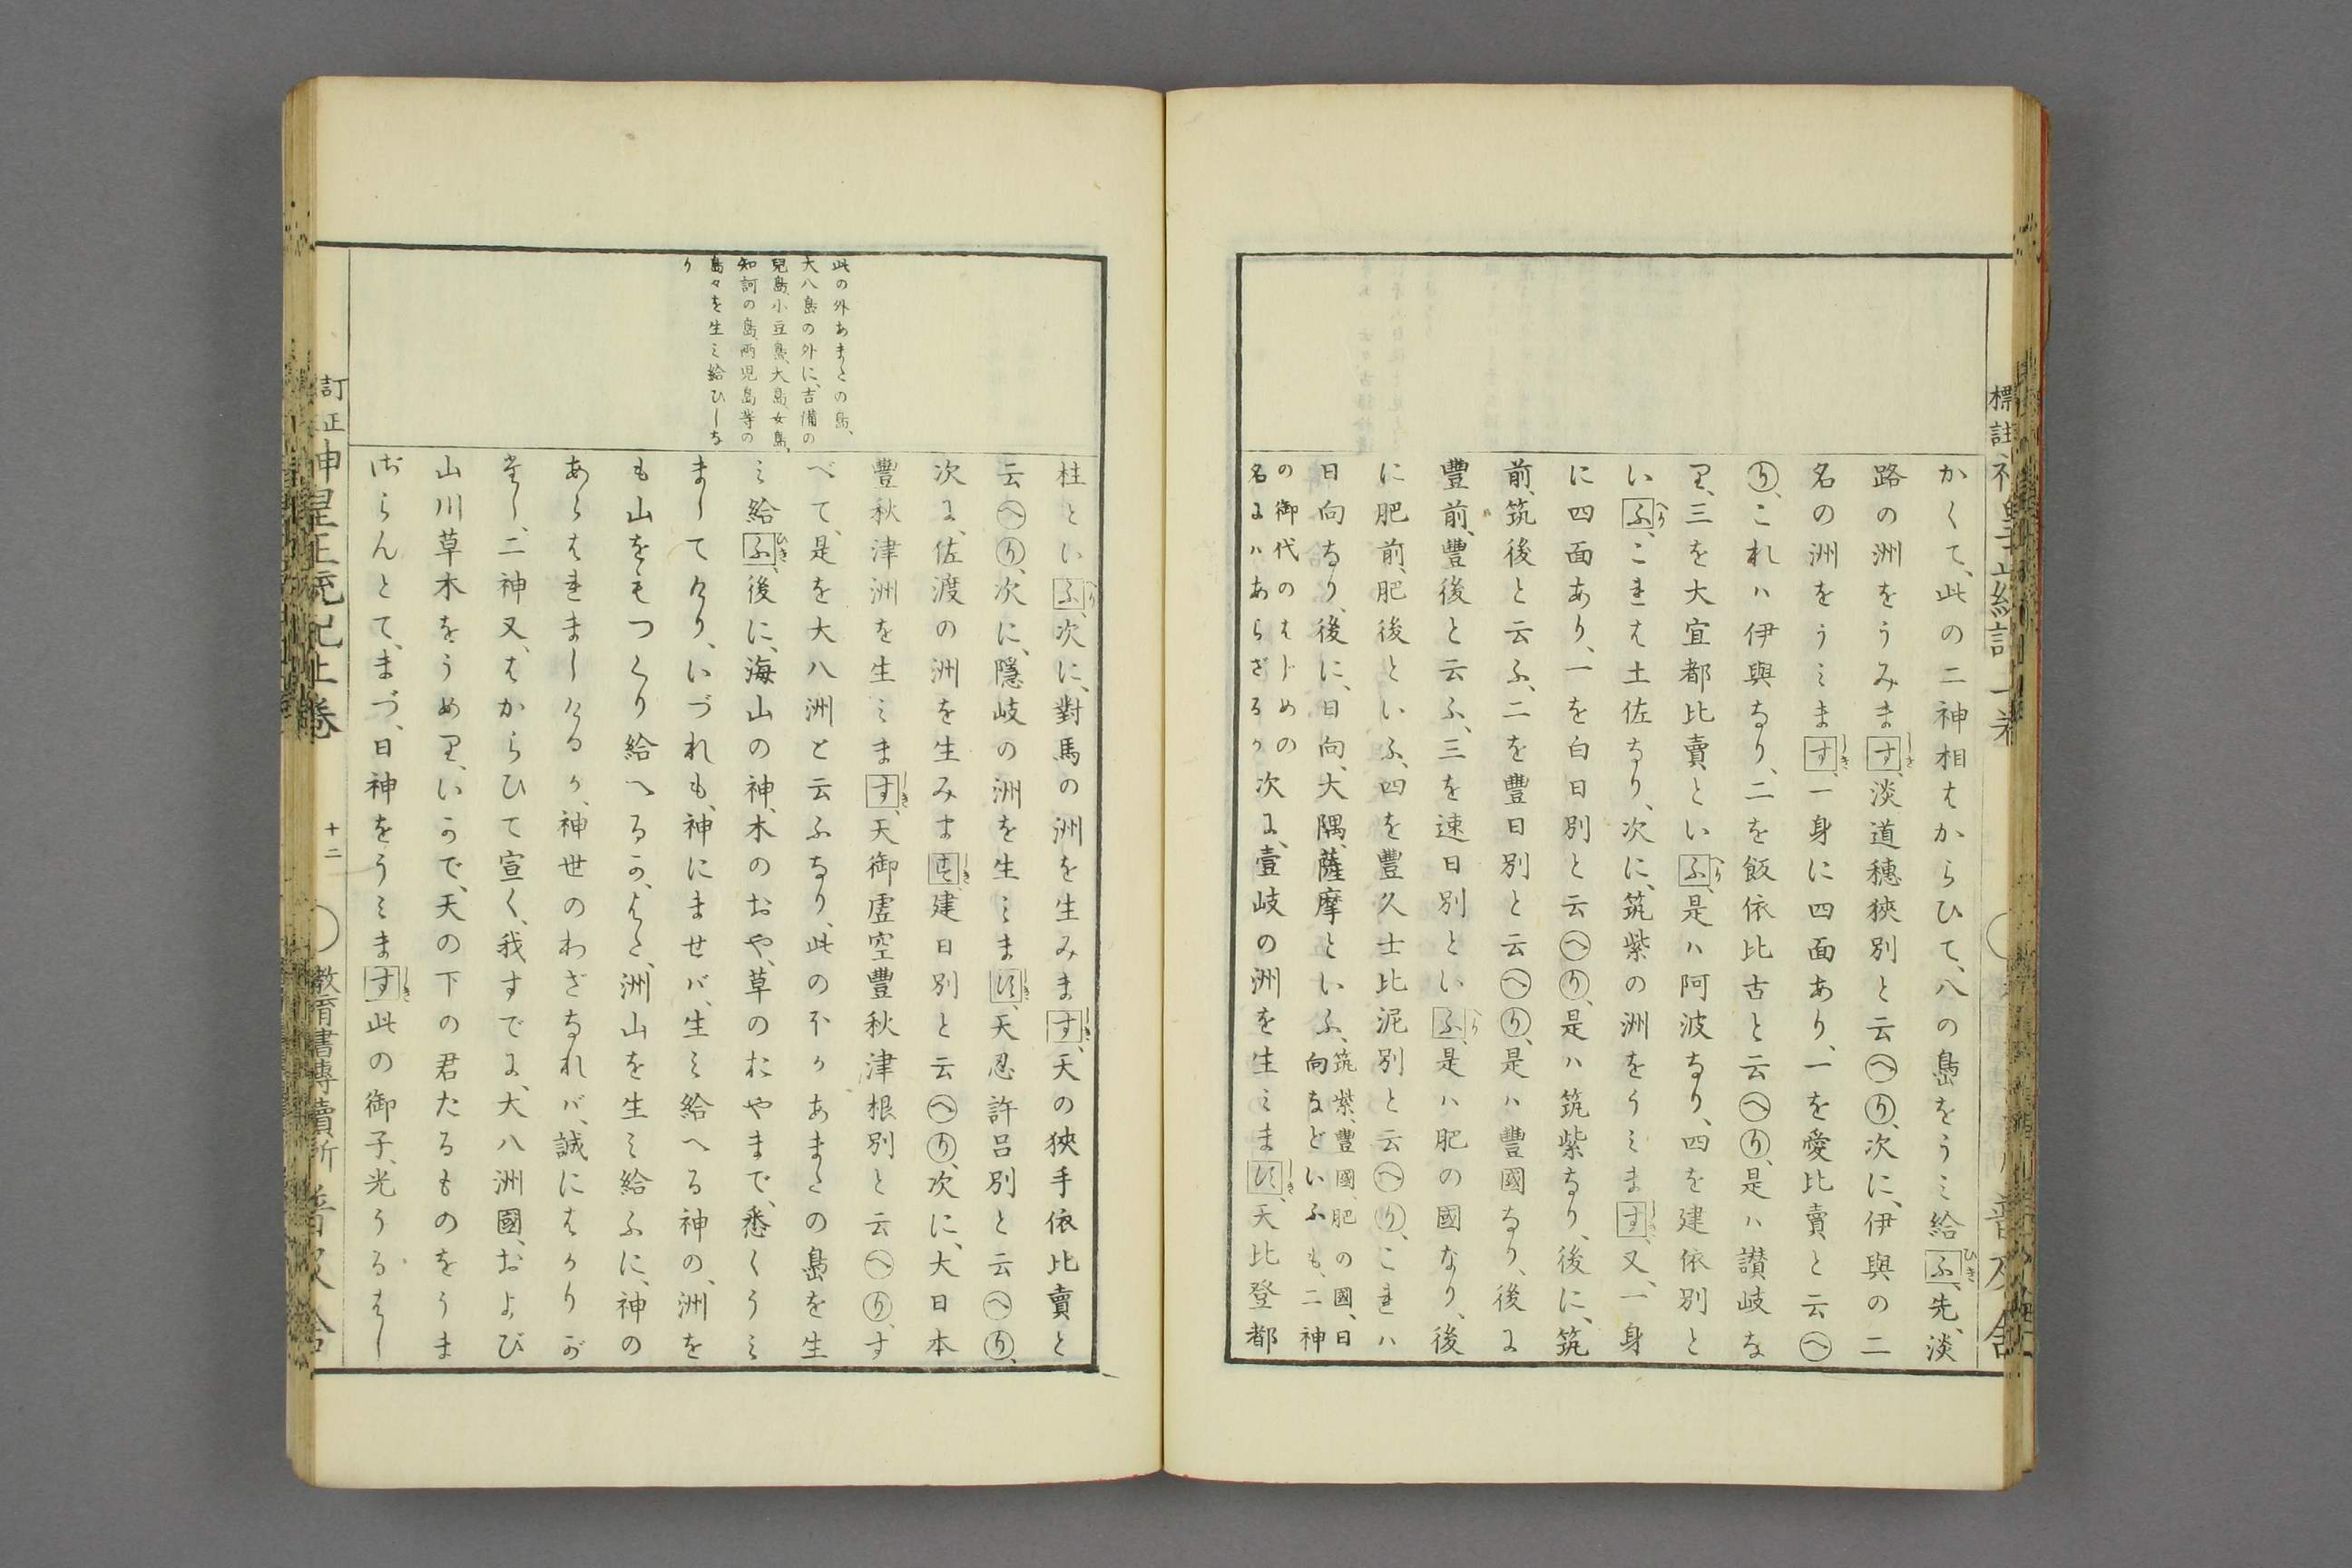 かくて、此の二神相はからひて、八の島をうミ給ふひき、先、淡
路の洲をうみますしき、淡道穗狹別と云へり、次に、伊與の二
名の洲をうミますしき、一身に四面あり、一を愛比賣と云へ
り、これハ伊與なり、二を飯依比古と云へり、是ハ讃岐な
り、三を大宜都比賣といふへり、是ハ阿波なり、四を建依別と
いふへり、これは土佐なり、次に、筑紫の洲をうミますしき、又、一身
に四面あり、一を白日別と云へり、是ハ筑紫なり、後に、筑
前、筑後と云ふ、二を豐日別と云へり、是ハ豐國なり、後に
豐前、豐後と云ふ、三を速日別といふへり、是ハ肥の國なり、後
に肥前、肥後といふ、四を豐久士比泥別と云へり、これハ
日向なり、後に、日向、大隅、薩摩といふ、
筑紫、豐國、肥の國、日
向などいふも、二神
の御代のはじめの
名にハあらざるか
次に、壹岐の洲を生ミますしき、天比登都
柱といふへり、次に、對馬の洲を生みますしき、天の狹手依比賣と
云へり、次に、隱岐の洲を生ミますしき、天忍許呂別と云へり、
次に、佐渡の洲を生みますしき、建日別と云へり、次に、大日本
豐秋津洲を生ミますしき、天御虛空豐秋津根別と云へり、す
べて、是を大八洲と云ふなり、此のほかあまたの島を生
ミ給ふひき、後に、海山の神、木のおや、草のおやまで、悉くうミ
ましてけり、いづれも、神にませバ、生ミ給へる神の、洲を
も山をもつくり給へるか、また、洲山を生ミ給ふに、神の
あらはれましけるか、神世のわざなれバ、誠にはかりが
たし、二神又、はからひて宣く、我すでに、大八洲國、および
山川草木をうめり、いかで、天の下の君たるものをうま
ざらんとて、まづ、日神をうミますしき此の御子、光うるはし
此の外あまたの島、
大八島の外に、吉備の
兒島、小豆島、大島、女島、
知訶の島、兩児島等の
島々を生ミ給ひしな
り
訂正神皇正統記上卷
十二
教育書專賣所 普及舍